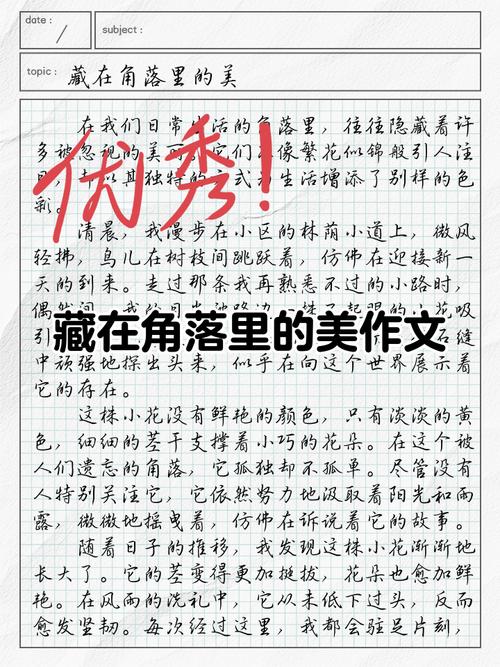 date：
subject：
topic：藏在角落里的美
在我们日常生活的角落里，往往隐藏着许
多被忽视的美 它们 像繁花似锦般引人注
以其独特的方式为生活增添了别样的色
彩。
优秀！
清晨，我漫步在小区的林荫小道上，微风
轻拂，鸟儿在树枝间跳跃着，仿佛在迎接新一
天的到来。走过那条我再熟悉不过的小路时，
偶然间 我的目光被路边一株不起眼的小花吸
引
藏在角落里的美作文
石缝
中顽强地探出头来，似乎在向这个世界展示着
它的存在。
这株小花没有鲜艳的颜色，只有淡淡的黄
色，细细的茎干支撑着小巧的花朵。在这个被
人们遗忘的角落，它孤独却不孤单。尽管没有
人特别关注它，它依然努力地汲取着阳光和雨
露，微微地摇曳着，仿佛在诉说着它的故事。
随着日子的推移，我发现这株小花渐渐地
长大了。它的茎变得更加挺拔，花朵也愈加鲜
艳。在风雨的洗礼中，它从未低下过头，反而
愈发坚韧。每次经过这里，我都会驻足片刻，